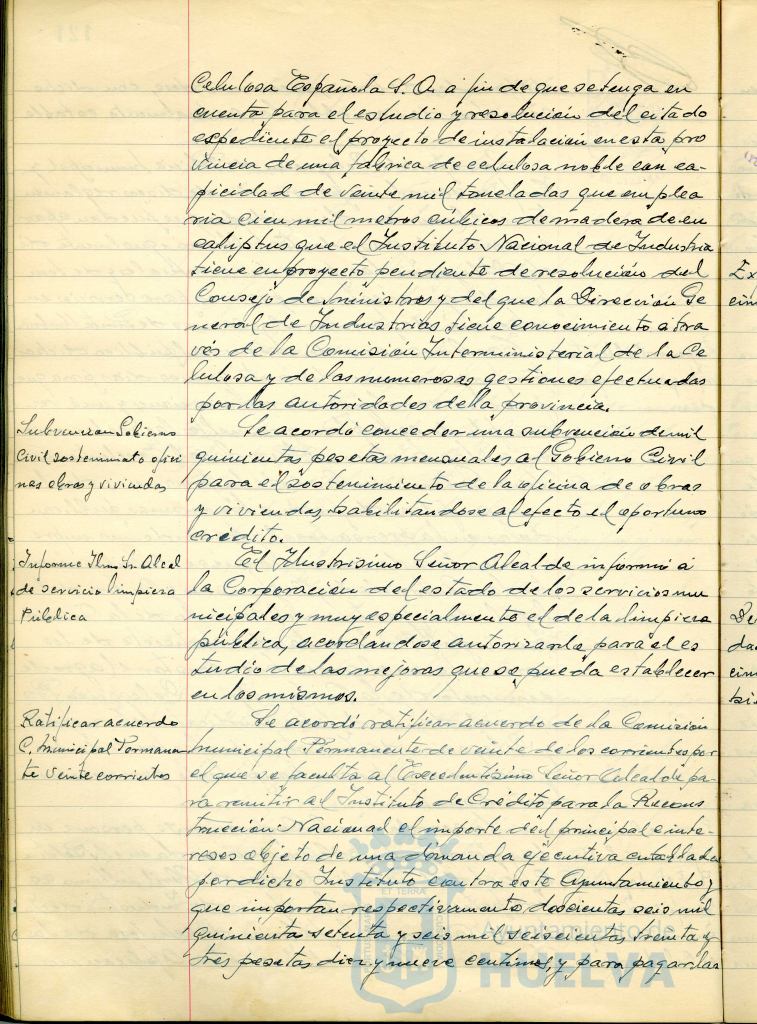 Celulosa Española S.A. a fin de que se tenga en
cuenta para el estudio y resolución del citado
expediente el proyecto de instalación en esta pro
vincia de una fábrica de celulosa noble con ca-
pacidad de veinte mil toneladas que emplea
ria cien mil metros cúbicos de madera de eu
caliptus que el Instituto Nacional de Industria
tiene en proyecto pendiente de resolución del
Consejo de Ministros y del que la Dirección Ge
neral de Industrias tiene conocimiento a tra
vés de la Comisión Interministerial de la Ce
lulosa y de las numerosas gestiones efectuadas
por las autoridades de la provincia.
Subvención Gobierno
Civil sostenimiento ofici
nas obras y viviendas
Se acordó conceder una subvención de mil
quinientas pesetas mensuales al Gobierno Civil
para el sostenimiento de la oficina de obras
y viviendas, habilitandose al efecto el oportuno
crédito.
Informe Ilmo Sr. Alcal
de servicio limpieza
Pública
El Ilustrisimo Señor Alcalde informó á
la Corporación del estado de los servicios mu
nicipales y muy especialmente el de la limpieza
pública, acordándose autorizarle para el es
tudio de las mejoras que se pueda establecer
en los mismos.
Ratificar acuerdo
C. Municipal Permanen
te veinte corrientes
Se acordó ratificar acuerdo de la Comisión
Municipal Permanente de veinte de los corrientes por
el que se faculta al Excelentísimo Señor Alcalde pa
ra remitir al Instituto de Crédito para la Recons
trucción Nacional el importe del principal e inte-
reses objeto de una demanda ejecutiva entablada
por dicho Instituto contra este Ayuntamiento y
que importan respectivamente doscientas seis mil
quinientas setenta y seis mil seiscientas treinta y
tres pesetas diez y nueve centimos, y para pagarlas
Ayuntamiento de
HUELVA